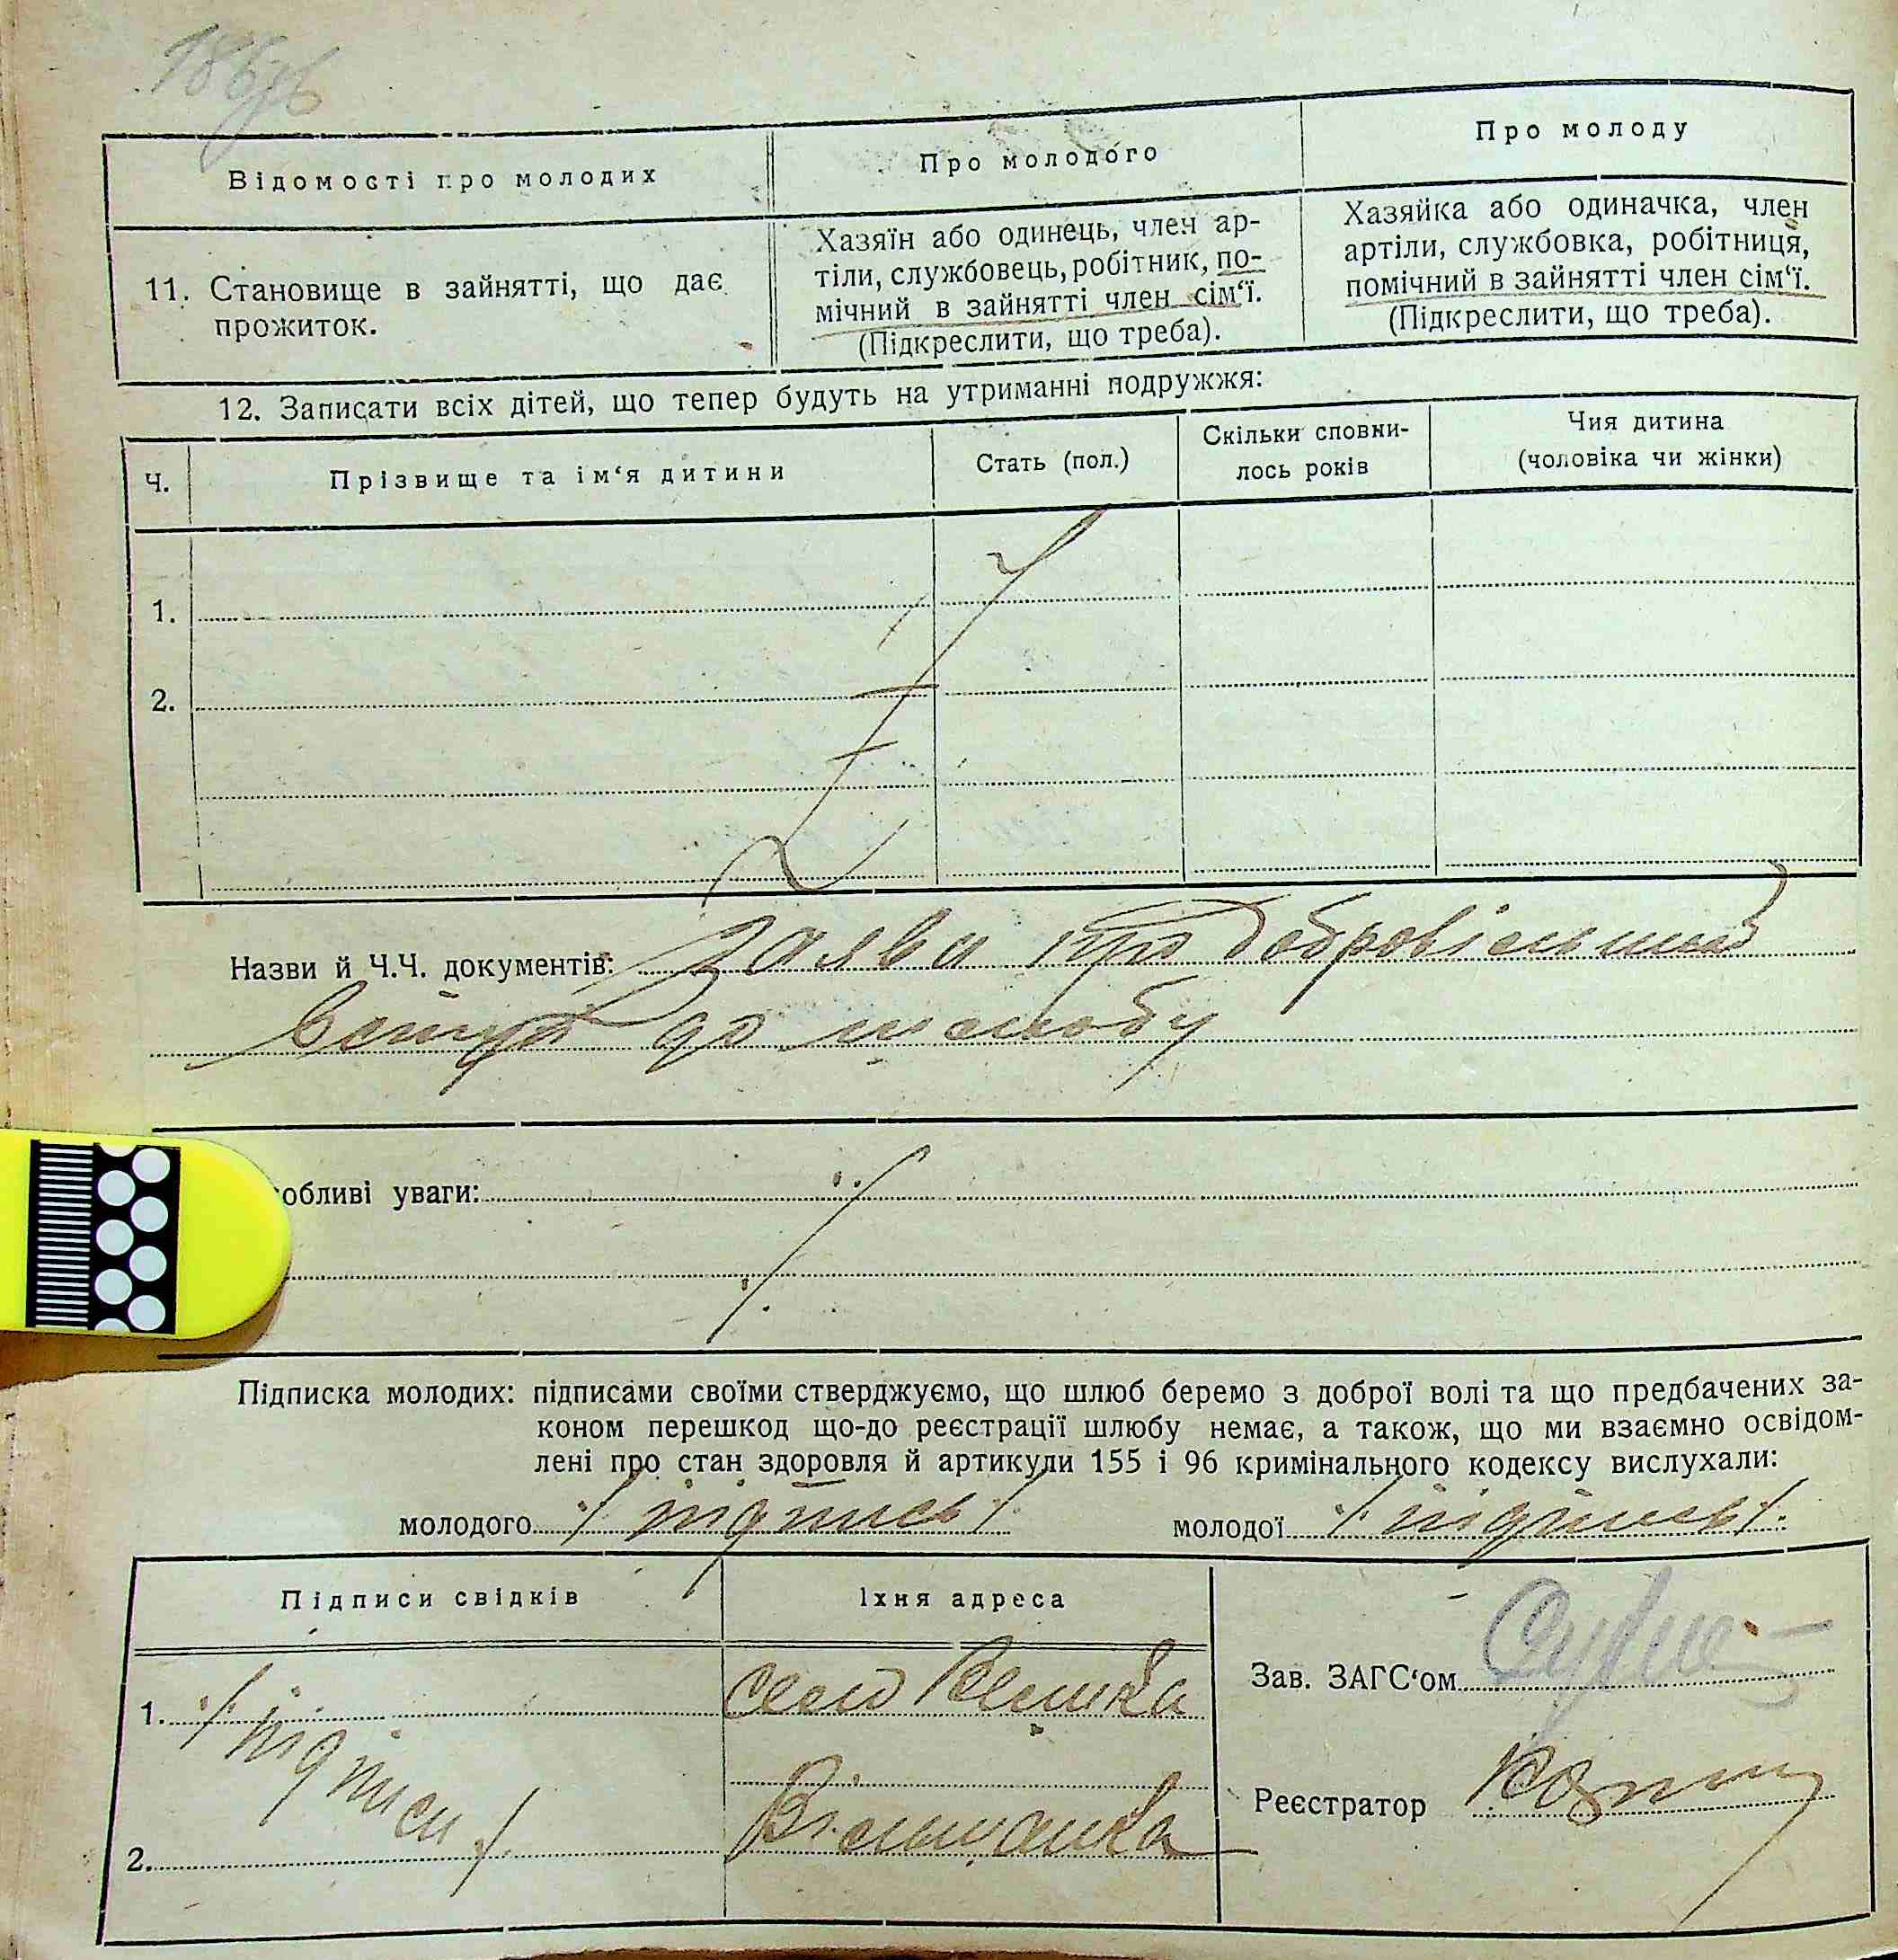 Відомості про молодих
Про молодого
Про молоду
11. Становище в зайнятті, що дає
прожиток.
Хазяїн або одинець, член ар-
тіли, службовець, робітник, по-
мічний в зайнятті член сім‘ї.
(Підкреслити, що треба).
Хазяйка або одиначка, член
артіли, службовка, робітниця,
помічний в зайнятті член сім‘ї.
(Підкреслити, що треба).
12. Записати всіх дітей, що тепер будуть на утриманні подружжя:
Ч.
Прізвище та ім‘я дитини
Стать (пол.)
Скільки сповни-
лось років
Чия дитина
(чоловіка чи жінки)
1.
2.
Назви й Ч.Ч. документів: Заява про добровільний
вступ до шлюбу
обливі уваги:
Підписка молодих: підписами своїми стверджуємо, що шлюб беремо з доброї волі та що предбачених за-
коном перешкод що-до реєстрації шлюбу немає, а також, що ми взаємно освідом-
лені про стан здоровля й артикули 155 і 96 кримінального кодексу вислухали:
молодого ./ підпись /. молодої ./ підпись /.
Підписи свідків
Їхня адреса
1. ./ підписи /.
село
2.
Вільшанка
Зав. ЗАГС‘ом
Реєстратор